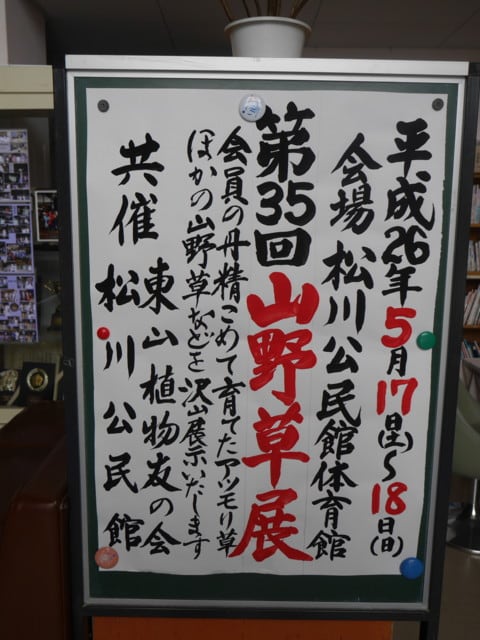 平成26年5月17日(土)～18日(日)
会場 松川公民館体育館
第35回 山野草展
会員の丹精こめて育てたアツモリ草
ほかの山野草などを沢山展示いたします
共催 東山植物友の会
松川公民館